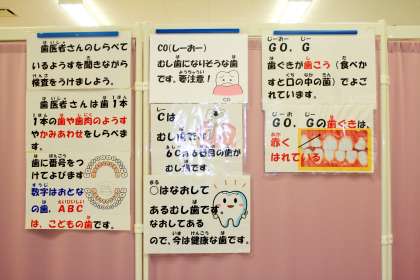 歯医者さんのしらべて
いるようすを聞きながら
検査をうけましょう。
歯医者さんは歯1本
1本の歯や歯肉のようす
やかみあわせをしらべま
す。
歯に番号をつ
けてよびます
数字はおとな
の歯、ABC
は、こどもの歯です。
CO(しーおー)
むし歯になりそうな歯
です。要注意!
CO
Cは
むし歯です。
6Cの6番目の歯が
むし歯です
○はなおして
あるむし歯です。
なおしてある
ので、今は健康な歯です。
GO、G
歯ぐきが歯こう(食べか
すと口の中の菌)でよご
れています。
GO、Gの歯ぐきは、
赤く
はれている